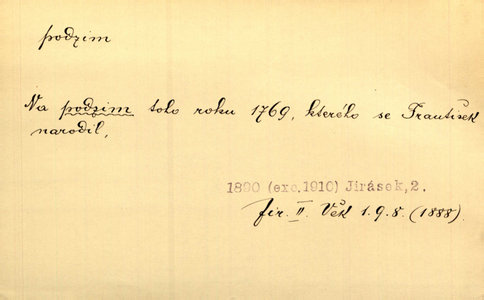 podzim
Na podzim toho roku 1769, kterého se František
narodil,
1890 (exc.1910) Jirásek,2.
Jir. II. Věk 1.9.8. (1888).